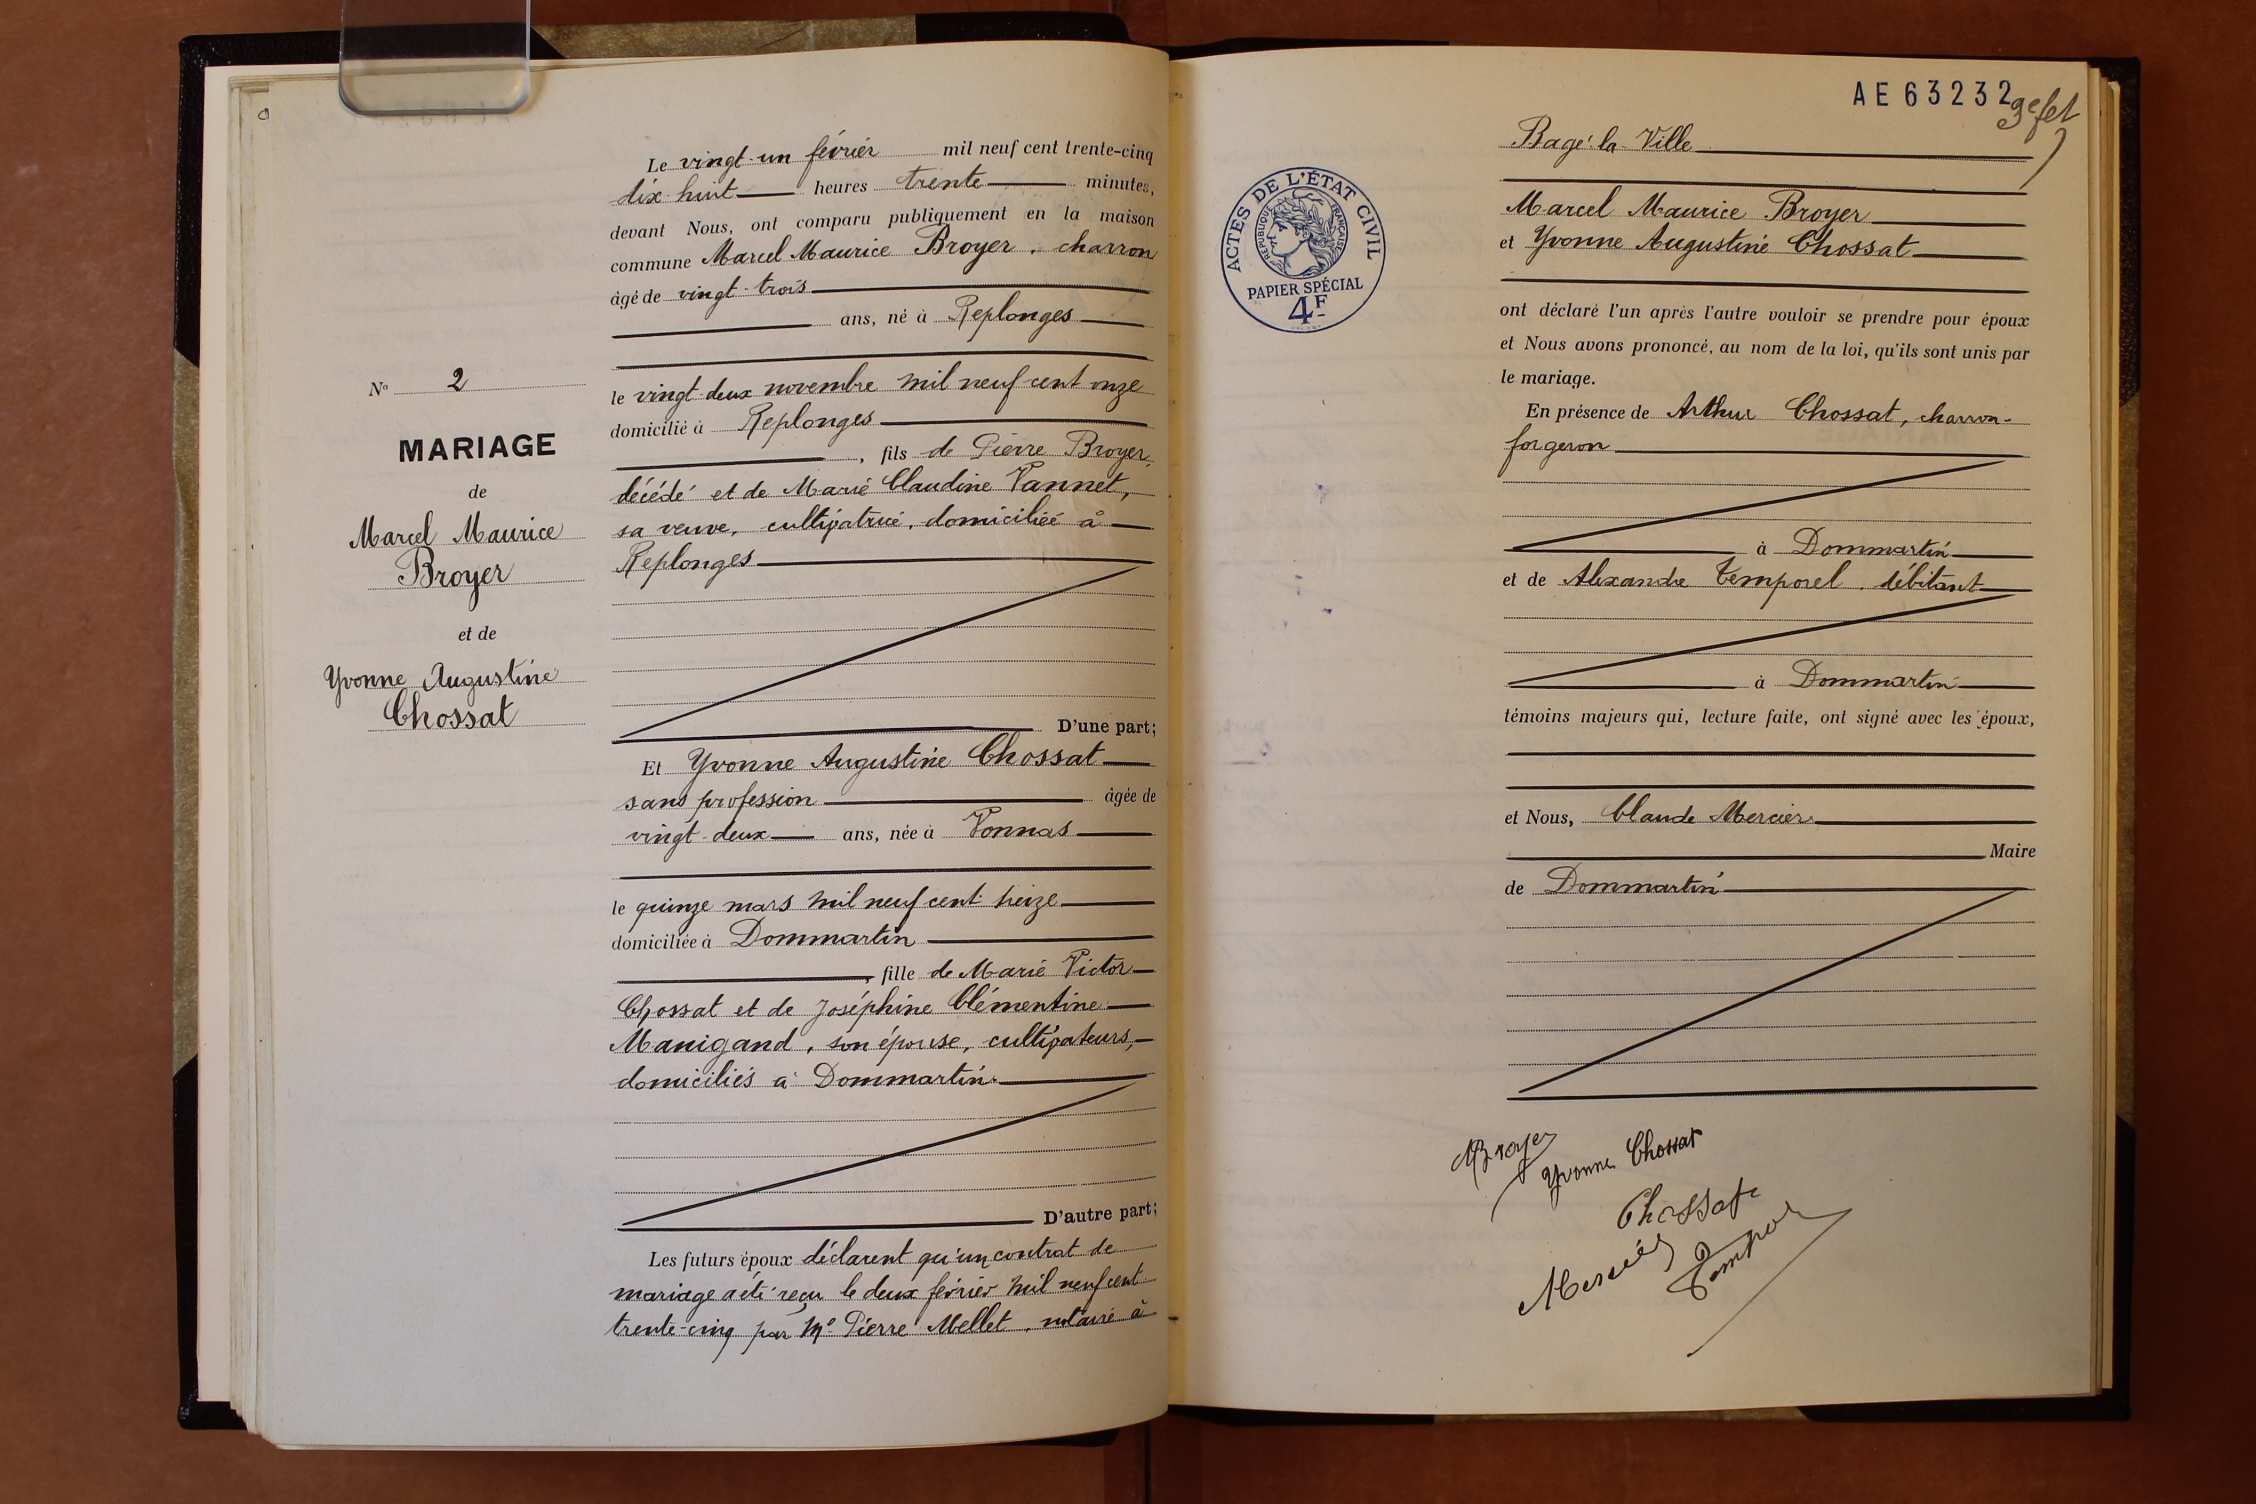 Le vingt-un février mil neuf cent trente-cinq
dix-huit heures trente minutes,
devant Nous, ont comparu publiquement en la maison
commune Marcel Maurice Broyer, charron
âgé de vingt-trois
ans, né à Replonges
le vingt-deux novembre mil neuf cent onze
domicilié à Replonges
, fils de Pierre Broyer,
décédé et de Marie Claudine Vannet,
sa veuve, cultivatrice, domiciliée à
Replonges
D'une part;
Nº 2
MARIAGE
de
Marcel Maurice
Broyer
et de
Yvonne Augustine
Chossat
Et Yvonne Augustine Chossat
sans profession âgée de
vingt-deux ans, née à Vonnas
le quinze mars mil neuf cent treize
domiciliée à Dommartin
, fille de Marie Victor
Chossat et de Joséphine Clémentine
Manigand, son épouse, cultivateurs,
domiciliés à Dommartin.
D'autre part;
Les futurs époux déclarent qu'un contrat de
mariage a été reçu le deux février mil neuf cent
trente-cinq par Me Pierre Mellet, notaire à
AE63232
3e fet
ACTES DE L'ÉTAT CIVIL
RÉPUBLIQUE FRANÇAISE
PAPIER SPÉCIAL
4F
Bagé-la-Ville
Marcel Maurice Broyer
et Yvonne Augustine Chossat
ont déclaré l'un après l'autre vouloir se prendre pour époux
et Nous avons prononcé, au nom de la loi, qu'ils sont unis par
le mariage.
En présence de Arthur Chossat, charron-
forgeron
à Dommartin
et de Alexandre Temporel, débitant
à Dommartin
témoins majeurs qui, lecture faite, ont signé avec les époux,
et Nous, Claude Mercier
Maire
de Dommartin
MBroyer
Yvonne Chossat
Chossat
Mercier